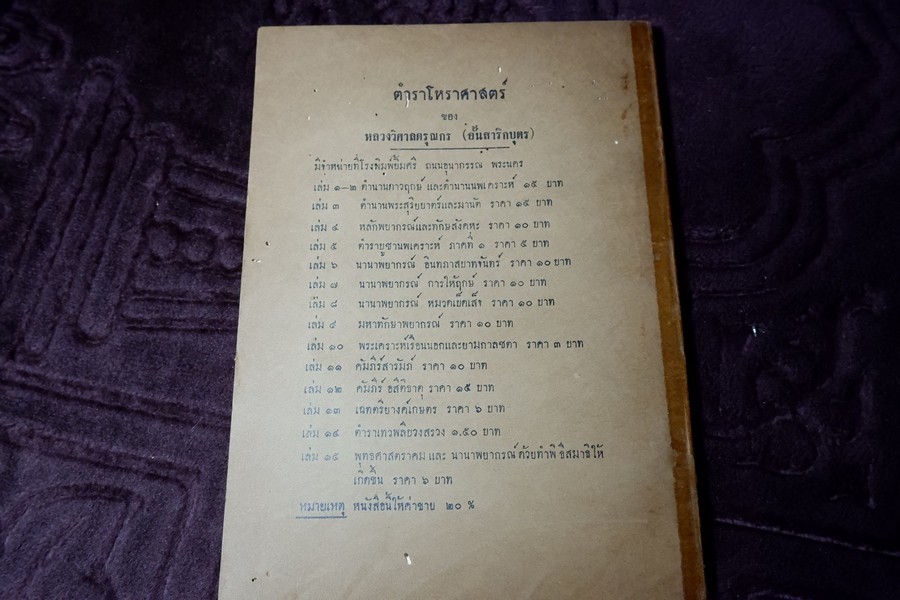 ตำราโหราศาสตร์
ของ
หลวงวิศาลดรุณกร (อั้นสาริกบุตร)
มีจำหน่ายที่โรงพิมพ์ยิ้มศรี ถนนอุนากรรณ์ พระนคร
เล่ม ๑-๒ ตำนานดาวฤกษ์ และตำนานนพเคราะห์ ๑๕ บาท
เล่ม ๓ ตำนานพระสุริยยาตร์และมานัต ราคา ๑๕ บาท
เล่ม ๔ หลักพยากรณ์และทักษสังคหะ ราคา ๑๐ บาท
เล่ม ๕ ตำราบูชานพเคราะห์ ภาคที่ ๑ ราคา ๕ บาท
เล่ม ๖ นานาพยากรณ์ อินทภาสบาทจันทร์ ราคา ๑๐ บาท
เล่ม ๗ นานาพยากรณ์ การให้ฤกษ์ ราคา ๑๐ บาท
เล่ม ๘ นานาพยากรณ์ หมวดเบ็ดเล็ง ราคา ๑๐ บาท
เล่ม ๙ มหาทักษาพยากรณ์ ราคา ๑๐ บาท
เล่ม ๑๐ พระเคราะห์เรือนนอกและยามกาลชตา ราคา ๓ บาท
เล่ม ๑๑ คัมภีร์สารัมภ์ ราคา ๑๐ บาท
เล่ม ๑๒ คัมภีร์ อสีติธาตุ ราคา ๑๕ บาท
เล่ม ๑๓ เสตตรียางค์เกษตร ราคา ๖ บาท
เล่ม ๑๔ ตำราเทวพลีบวงสรวง ๑.๕๐ บาท
เล่ม ๑๕ พุทธศาสตราคม และ นานาพยากรณ์ ด้วยทำพิ ธีสมาธิให้
เกิดขึ้น ราคา ๖ บาท
หมายเหตุ หนังสือนี้ให้ค่าขาย ๒๐ %